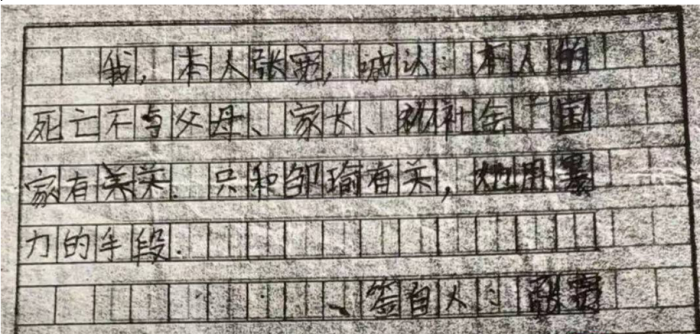 我，本人张宽，诚认：本人的
死亡不与父母、家长、和社会、国
家有关系．只和邹瑜有关，她用暴
力的手段．
签自人：张宽